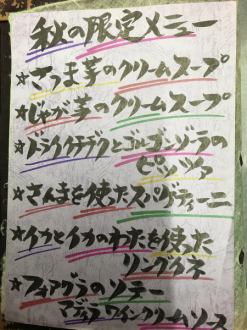 秋の限定メニュー
☆さつま芋のクリームスープ
☆じゃが芋のクリームスープ
☆ドライイチヂクとゴルゴンゾーラの
ピッツァ
☆さんまを使ったスパゲティーニ
☆イカとイカのわたを使った
リングイネ
☆フォアグラのソテー
マデラワインクリームソース